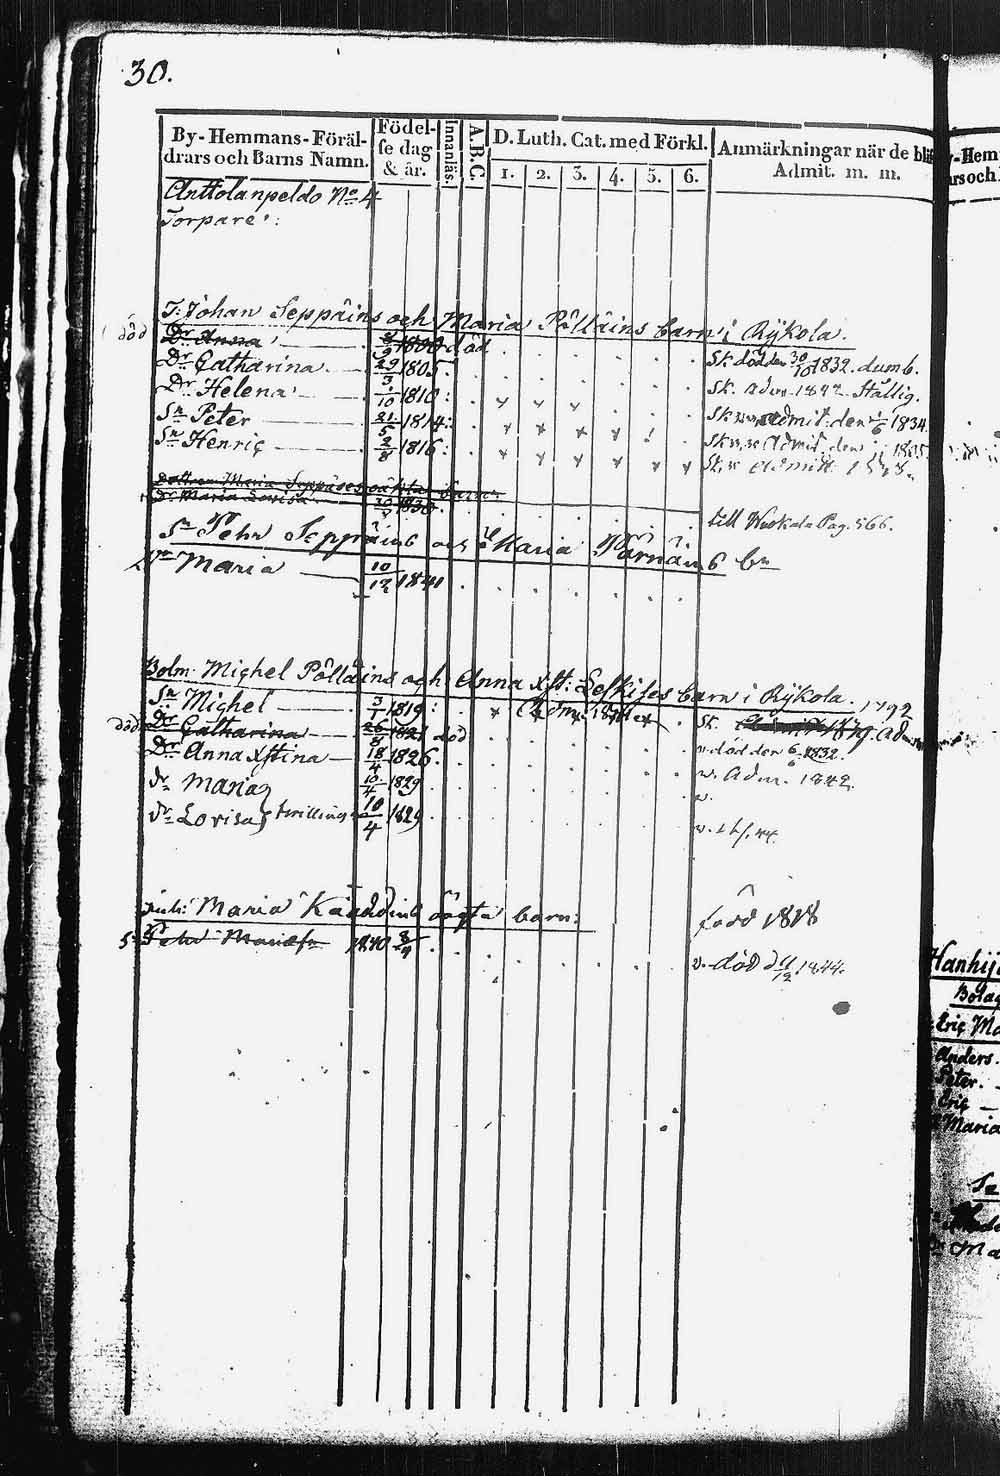 30.
By-Hemmans-Föräl-
drars och Barns Namn.
Födel-
se dag
& år.
Innanläs.
A.B.C.
D. Luth. Cat. med Förkl.
1. 2. 3. 4. 5. 6.
Anmärkningar när de bli
Admit. m. m.
Anttolanpeldo No 4
Torpare:
T: Johan Seppäins och Maria Pölläins barn i Rykola.
död Dr Anna 9 1800 död
Dr Catharina 29/3 1805 Sk. död den 30/10 1832. dumb.
Dr Helena 10 1810: Sk. adm 1842
Sn Peter 21/5 1814: Sk admit: den 1834.
Sn Henric 2/8 1816: Sk admit. den
Sk. admitt
Maria Seppäses oäkta barn
Dr Maria Lovisa 1830. till Wuokala Pag. 566.
Sn Pehr Seppäins och Maria Pärnäins bn
Dr Maria 10/12 1841
Bolm. Michel Pölläins och Anna Xst: Leskises barn i Rykola. 1792
Sn Michel 3/7 1819: Sk.
död Dr Catharina 26/8 1821 död v. död den 6/6 1832.
Dr Anna Xstina 18/4 1826. v. Adm. 1842.
dr Maria 10/4 1829 v.
dr Lovisa twillingar 10/4 1829
Maria oägta barn: född 1818
Sn Pehr 1840 8/4 v. död d 11/12 1844.
y-Hem
rs och
Hanhij
Bolag
Eric Ma
Anders.
Peter.
Eric
Maria
Ma